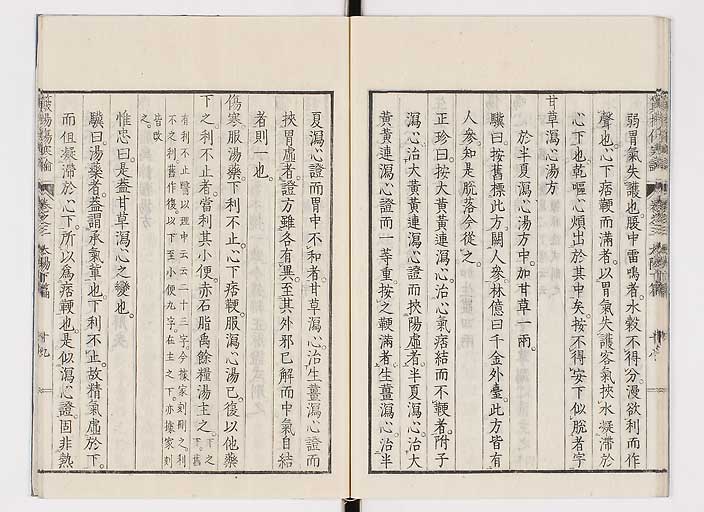 弱胃氣失護也腹中雷鳴者水穀不得分漫欲利而作
聲也心下痞鞕而滿者以胃氣失護客氣挾水凝滯於
心下也乾嘔心煩出於其中矣按不得安下似脫者字
甘草瀉心湯方
於半夏瀉心湯方中加甘草一兩
驥曰按舊標此方闕人參林億曰千金外臺此方皆有
人參知是脫落今從之
正珍曰按大黃黃連瀉心治心氣痞結而不鞕者附子
瀉心治大黃黃連瀉心證而挾陽虛者半夏瀉心治大
黃黃連瀉心證而一等重按之鞕滿者生薑瀉心治半
夏瀉心證而胃中不和者甘草瀉心治生薑瀉心證而
挾胃虛者證方雖各有異至其外邪已解而中氣自結
者則一也
傷寒服湯藥下利不止心下痞鞕服瀉心湯已復以他藥
下之利不止者當利其小便赤石脂禹餘糧湯主之下之舊
有利不止醫以理中云云二十三字今據家刻刪之利
不之利舊作復以下至小便九字在主之下亦據家刻
皆改之
惟忠曰是蓋甘草瀉心之變也
驥曰湯藥者蓋謂承氣輩也下利不止故精氣虛於下
而但凝滯於心下所以爲痞鞕也是似瀉心證固非熱
傷寒論
卷之三
太陽下篇
十九